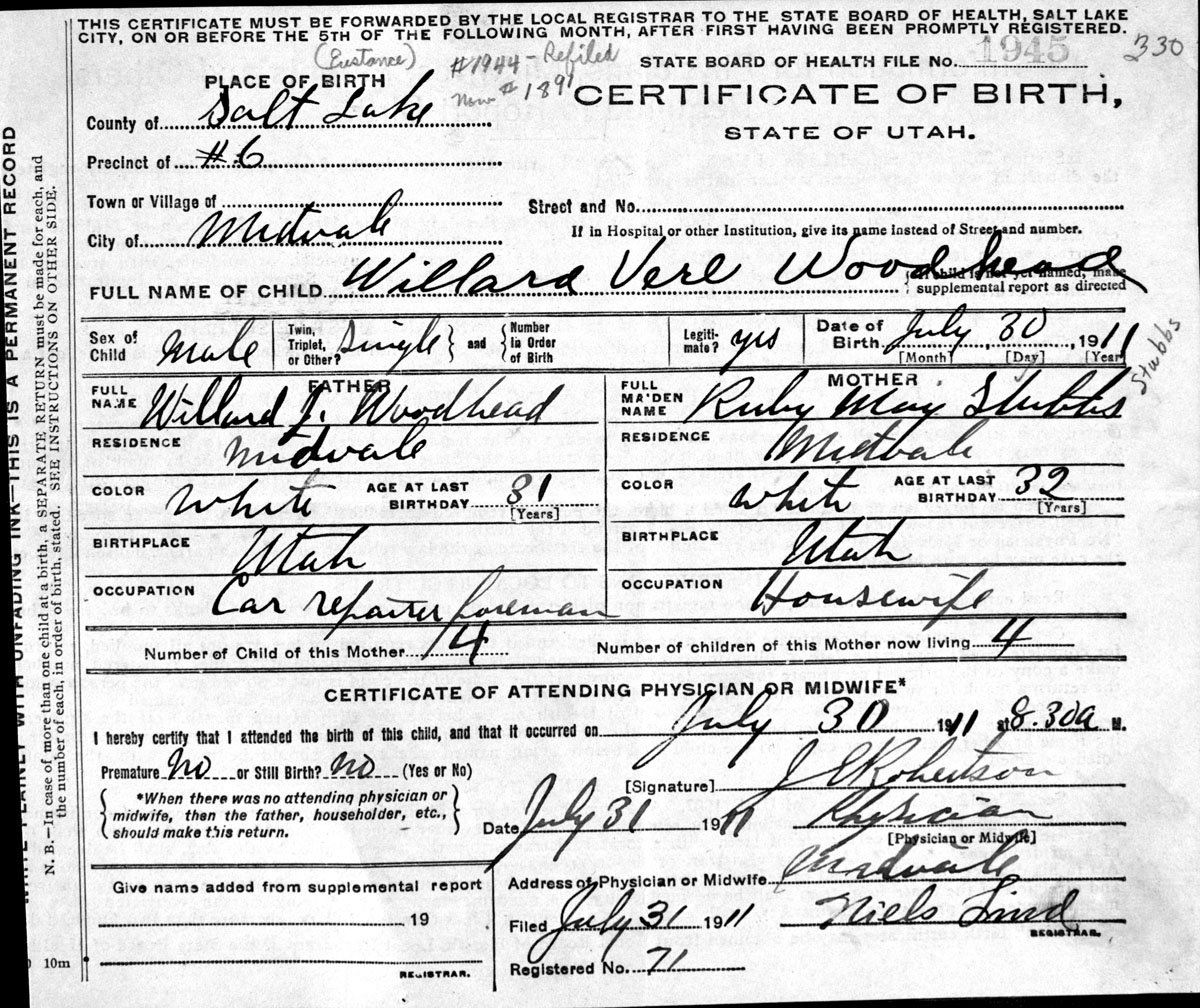 THIS CERTIFICATE MUST BE FORWARDED BY THE LOCAL REGISTRAR TO THE STATE BOARD OF HEALTH, SALT LAKE
CITY, ON OR BEFORE THE 5TH OF THE FOLLOWING MONTH, AFTER FIRST HAVING BEEN PROMPTLY REGISTERED.
(Eustance) #1944 - Refiled
Now #1891
STATE BOARD OF HEALTH FILE No. 1945 330
PLACE OF BIRTH
CERTIFICATE OF BIRTH,
STATE OF UTAH.
County of Salt Lake
Precinct of #6
Town or Village of
Street and No.
City of Midvale
If in Hospital or other Institution, give its name instead of Street and number.
FULL NAME OF CHILD Willard Verl Woodhead
{If child is not yet named, make
supplemental report as directed
Sex of Child Male
Twin, Triplet, or Other? Single } and { Number in Order of Birth
Legitimate? yes
Date of Birth July 30, 1911
[Month] [Day] [Year]
Stubbs
FATHER
FULL NAME Willard J. Woodhead
MOTHER
FULL MAIDEN NAME Ruby May Stubbs
RESIDENCE Midvale
RESIDENCE Midvale
COLOR White AGE AT LAST BIRTHDAY 31 [Years]
COLOR White AGE AT LAST BIRTHDAY 32 [Years]
BIRTHPLACE Utah
BIRTHPLACE Utah
OCCUPATION Car repairer foreman
OCCUPATION Housewife
Number of Child of this Mother 4
Number of children of this Mother now living 4
CERTIFICATE OF ATTENDING PHYSICIAN OR MIDWIFE*
I hereby certify that I attended the birth of this child, and that it occurred on July 30 1911 at 8.30a M.
Premature No or Still Birth? No (Yes or No)
[Signature] Robertson
{ *When there was no attending physician or
midwife, then the father, householder, etc.,
should make this return. }
Date July 31 1911 Physician
[Physician or Midwife]
Address of Physician or Midwife Midvale
Give name added from supplemental report
19
REGISTRAR.
Filed July 31 1911 Niels Lind
REGISTRAR.
Registered No. 71
10m
WRITE PLAINLY WITH UNFADING INK—THIS IS A PERMANENT RECORD
N. B.—In case of more than one child at a birth, a SEPARATE RETURN must be made for each, and
the number of each, in order of birth, stated. SEE INSTRUCTIONS ON OTHER SIDE.